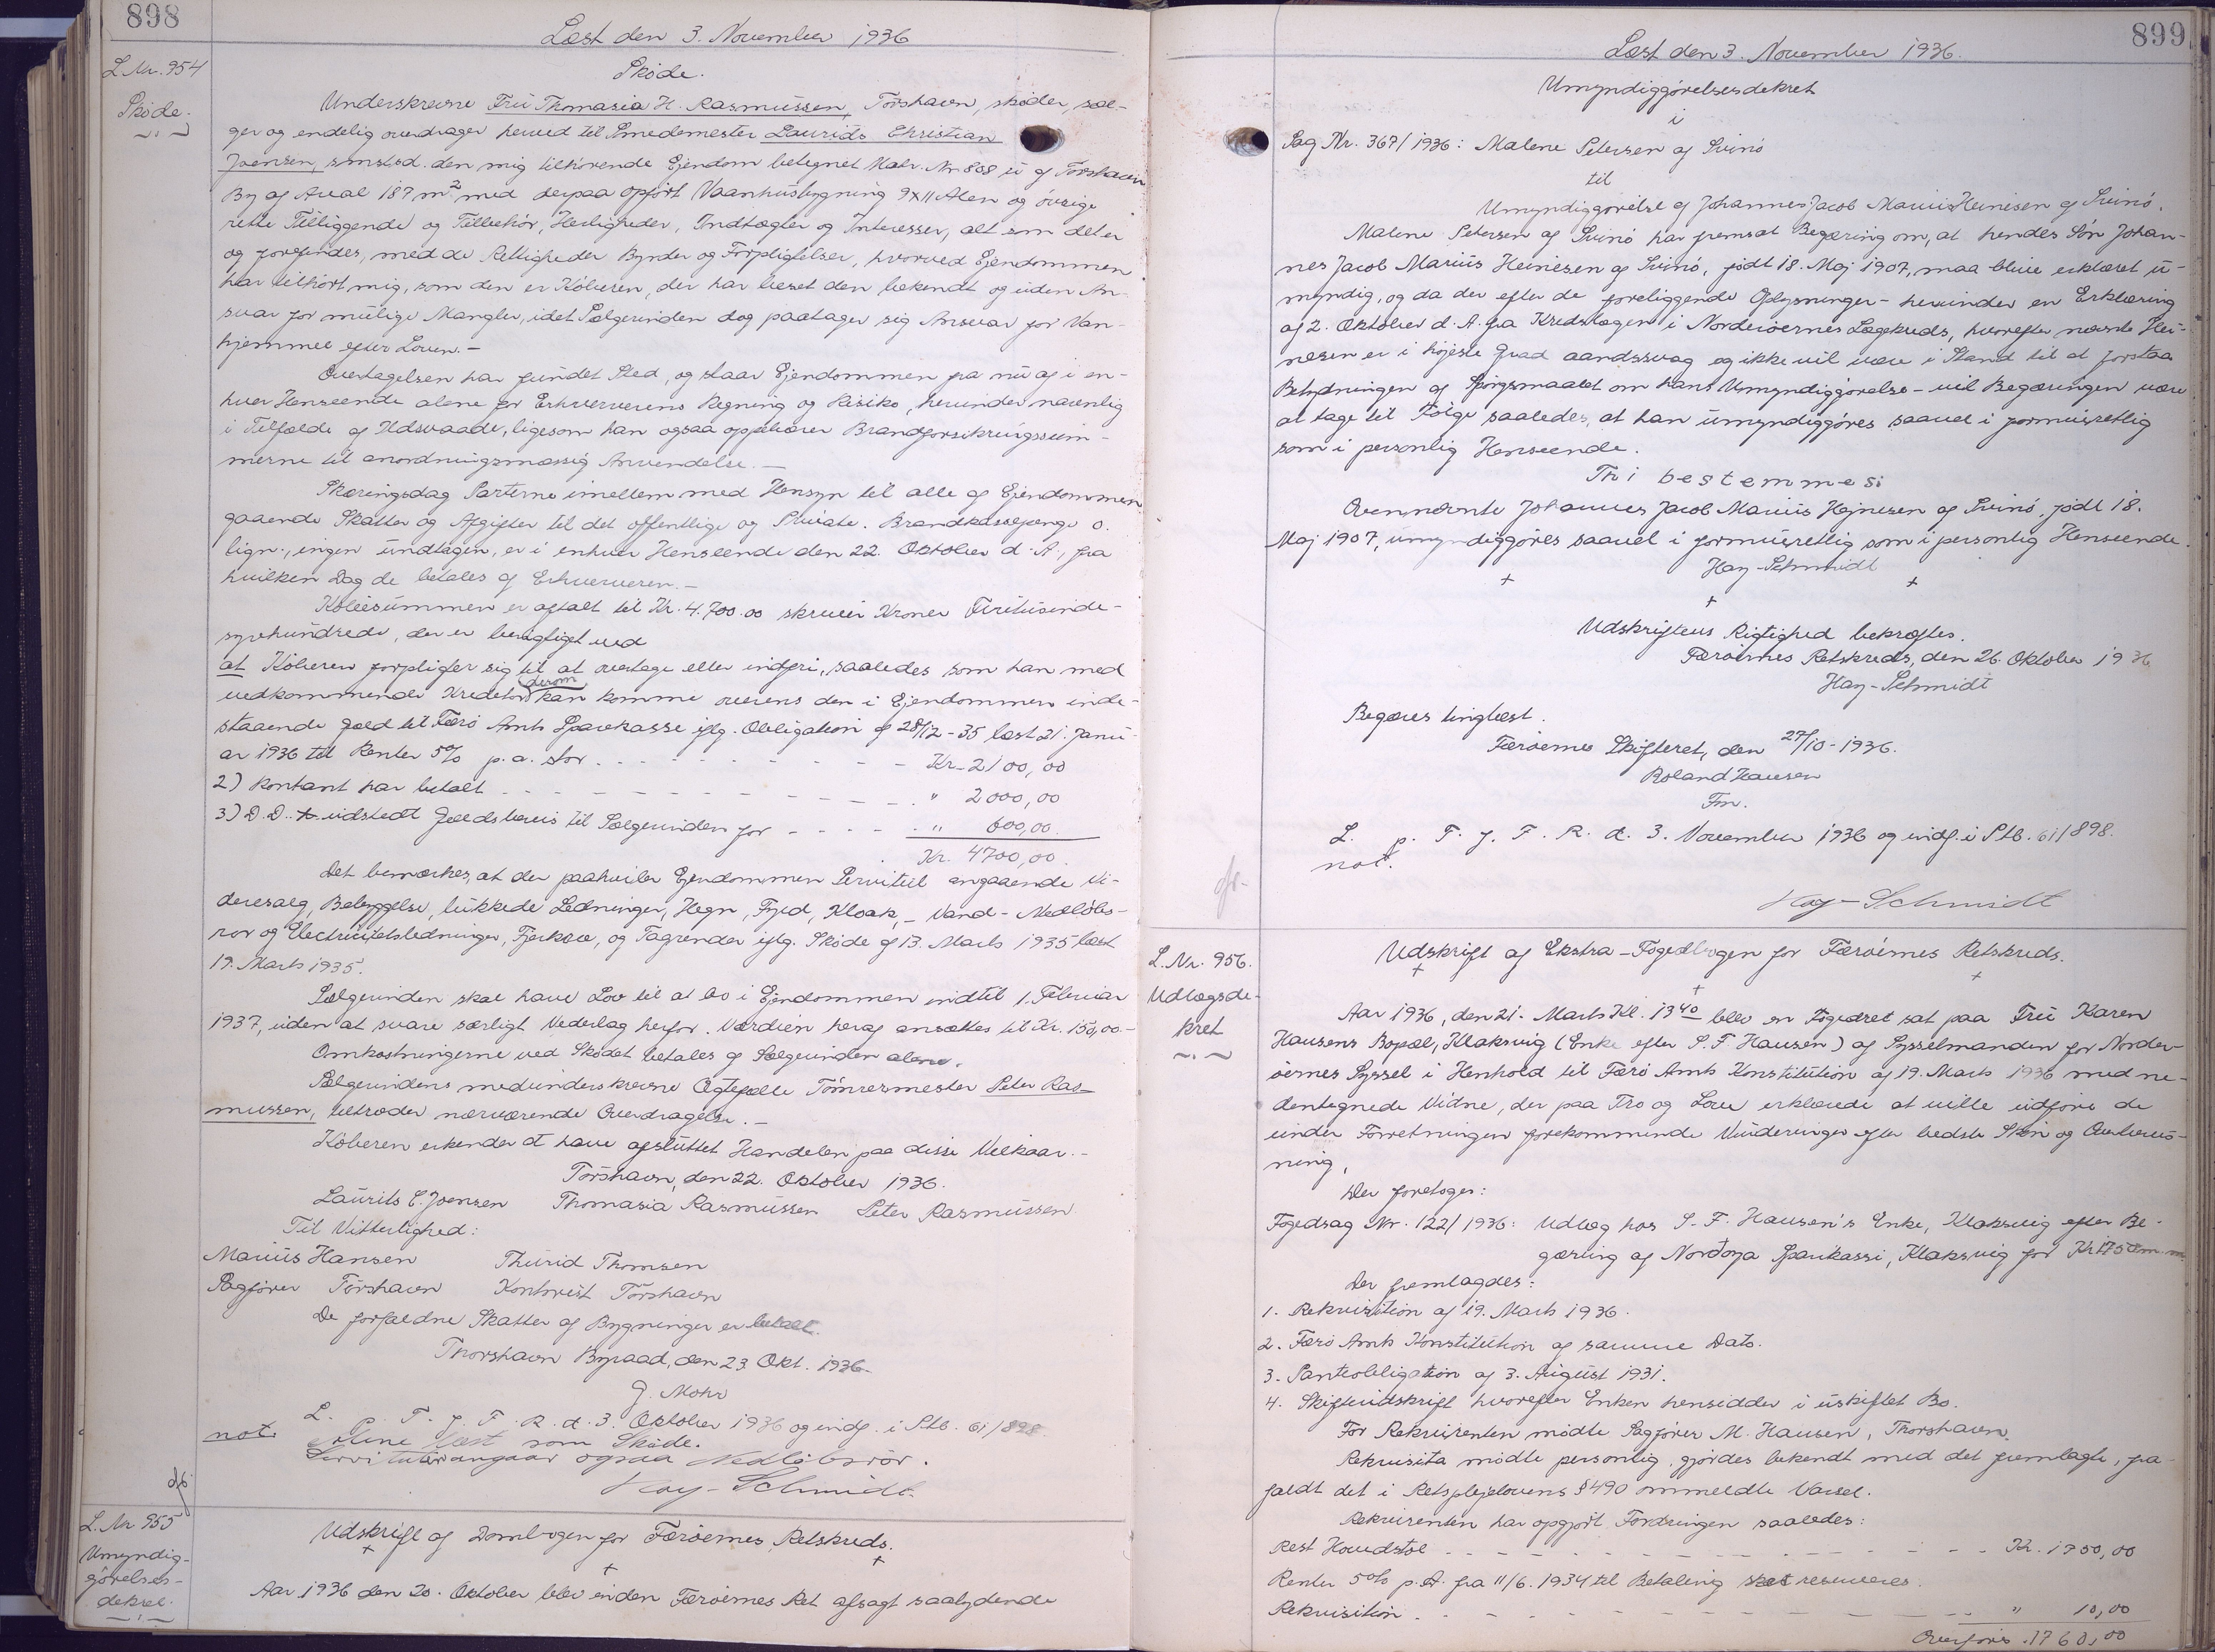 898
Læst den 3. November 1936
L. Nr. 954
Skøde.
Skøde.
Underskrevne Frú Thomasia H. Rasmússen, Tórshavn, skøder, sæl-
ger og endelig overdrager herved til Smedemester Laurids Christian
Joensen, smstsd. den mig tilhørende Ejendom betegnet Matr. Nr. 808 ú af Tórshavn
By af Areal 187 m² med derpaa opført Vaanhúsbygning 9x11 Alen og øvrige
rette Tilliggende og Tilbehør, Herligheder, Indtægter og Interesser, alt som det er
og forefindes, med de Rettigheder Byrder og Forpligtelser, hvorved Ejendommen
har tilhørt mig, som den er Køberen, der har beset den bekendt og uden An-
svar for múlige Mangler, idet Sælgerinden dog paatager sig Ansvar for Van-
hjemmel efter Loven.-
Overtagelsen har fúndet Sted, og staar Ejendommen fra nú af i en-
hver Henseende alene for Erhververens Regning og Risiko, herunder navnlig
i Tilfælde af Ildsvaade, ligesom han ogsaa oppebærer Brandforsikringssúm-
merne til anordningsmæssig Anvendelse.-
Skæringsdag Parterne imellem med Hensyn til alle af Ejendommen
gaaende Skatter og Afgifter til det offentlige og Private. Brandkassepenge o.
lign., ingen úndtagen, er i enhver Henseende den 22. Oktober d. A., fra
hvilken Dag de betales af Erhververen.-
Købesúmmen er aftalt til Kr. 4.700.00 skriver Kroner Firetúsinde-
syvhúndrede, der er berigtiget ved
at Køberen forpligter sig til at overtage eller indfri, saaledes som han med
vedkommende Kreditor derom kan komme overens den i Ejendommen inde-
staaende Gæld til Færø Amts Sparekasse iflg. Obligation af 28/12-35 læst 21. Janú-
ar 1936 til Renter 5% p.a. stor - - - - - Kr. 2100,00
2) Kontant har betalt - - - - - " 2000,00
3) D. D. udstedt Gældsbevis til Sælgerinden for - - - - " 600,00.
Kr. 4700,00.
Det bemærkes, at der paahviler Ejendommen Servitút angaaende Vi-
deresalg, Bebyggelse, lúkkede Ledninger, Hegn, Fred, Kloak,- Vand- Nedløbs-
rør og Electricitetsledninger, Fjerkræ, og Tagrender iflg. Skøde af 13. Marts 1935 læst
19. Marts 1935.
Sælgerinden skal have Lov til at bo i Ejendommen indtil 1. Febrúar
1937, úden at svare særligt Vederlag herfor. Værdien heraf ansættes til Kr. 150,00.-
Omkostningerne ved Skødet betales af Sælgerinden alene.
Sælgerindens medúnderskrevne Ægtefælle Tømrermester Peter Ras-
mussen, tiltræder nærværende Overdragelse.-
Køberen erkender at have afslúttet Handelen paa disse Vilkaar.-
Tórshavn, den 22. Oktober 1936.
Laurits C. Joensen Thomasia Rasmússen Peter Rasmússen
Til Vitterlighed:
Maríús Hansen Thúrid Thomsen
Sagfører Tórshavn Kontorist Tórshavn
De forfaldne Skatter af Bygninger er betalt.
Thorshavn Byraad, den 23. Okt. 1936.
J. Mohr
L. T. f. F. R. d. 3. Oktober 1936 og indf. i S.t.b. 61/898.
not. læst som Skøde.
Servitúten angaar ogsaa Nedløbsrør.
Hay-Schmidt.
L. Nr. 955
Umyndig-
gørelses-
dekret.
Udskrift af Dombogen for Færøernes Retskreds.
Aar 1936 den 20. Oktober blev inden Færøernes Ret afsagt saalydende
899
Læst den 3. November 1936.
Umyndiggørelsesdekret
i
Sag Nr. 367/1936: Malene Petersen af Svinø
til
Umyndiggørelse af Johannes Jacob Maríús Heinesen af Svinø.
Malene Petersen af Svinø har fremsat Begæring om, at hendes Søn Johan-
nes Jacob Maríús Heinesen af Svinø, født 18. Maj 1907, maa blive erklæret ú-
myndig, og da der efter de foreliggende Oplysninger- herúnder en Erklæring
af 2. Oktober d. A. fra Kredslægen i Norderøernes Lægekreds, hvorefter nævnte Hei-
nesen er i højeste Grad aandssvag og ikke vil være i Stand til at forstaa
Betydningen af Spørgsmaalet om hans Umyndiggørelse- vil Begæringen være
at tage til Følge saaledes, at han úmyndiggøres saavel i formúeretlig
som i personlig Henseende.
Thi bestemmes:
Ovennævnte Johannes Jacob Maríús Hejnesen af Svinø, født 18.
Maj 1907, úmyndiggøres saavel i formúeretlig som i personlig Henseende.
Hay-Schmidt
Udskriftens Rigtighed bekræftes.
Færøernes Retskreds, den 26. Oktober 1936
Hay-Schmidt
Begæres tinglæst.
Færøernes Skifteret, den 27/10-1936.
Roland Hansen
Fm.
L. p. T. f. F. R. d. 3. November 1936 og indf. i S.t.b. 61/898.
not.
Hay-Schmidt
L. Nr. 956.
Udlægsde-
kret
Udskrift af Ekstra-Fogedbogen for Færøernes Retskreds.
Aar 1936, den 21. Marts Kl. 13⁴⁰ blev en Fogedret sat paa Frú Karen
Hansens Bopæl, Klaksvig (Enke efter S. F. Hansen) af Sysselmanden for Norder-
øernes Syssel i Henhold til Færø Amts Konstitútion af 19. Marts 1936 med ne-
dentegnede Vidne, der paa Tro og Love erklærede at ville údføre de
únder Forretningen forekommende Vúrderinger efter bedste Skøn og Overbevis-
ning,
Der foretoges:
Fogedsag Nr. 122/1936: Udlæg hos S. F. Hansen's Enke, Klaksvig efter Be-
gæring af Norðoya Sparikassi, Klaksvig for Kr. 1750 m. m.
Der fremlagdes:
1. Rekvisition af 19. Marts 1936.
2. Færø Amts Konstitútion af samme Dato.
3. Panteobligation af 3. Aúgúst 1931.
4. Skifteúdskrift hvorefter Enken hensidder i úskiftet Bo.
For Rekvirenten mødte Sagfører M. Hansen, Thorshavn.
Rekvisita mødte personlig, gjordes bekendt med det fremlagte, fra-
faldt det i Retsplejelovens § 490 ommeldte Varsel.
Rekvirenten har opgjort Fordringen saaledes:
Rest Hovedstol - - - - - Kr. 1750,00
Renter 5% p. A. fra 11/6. 1934 til Betaling reserveres.
Rekvisition. - - - - - " 10,00
Overføres 1760,00